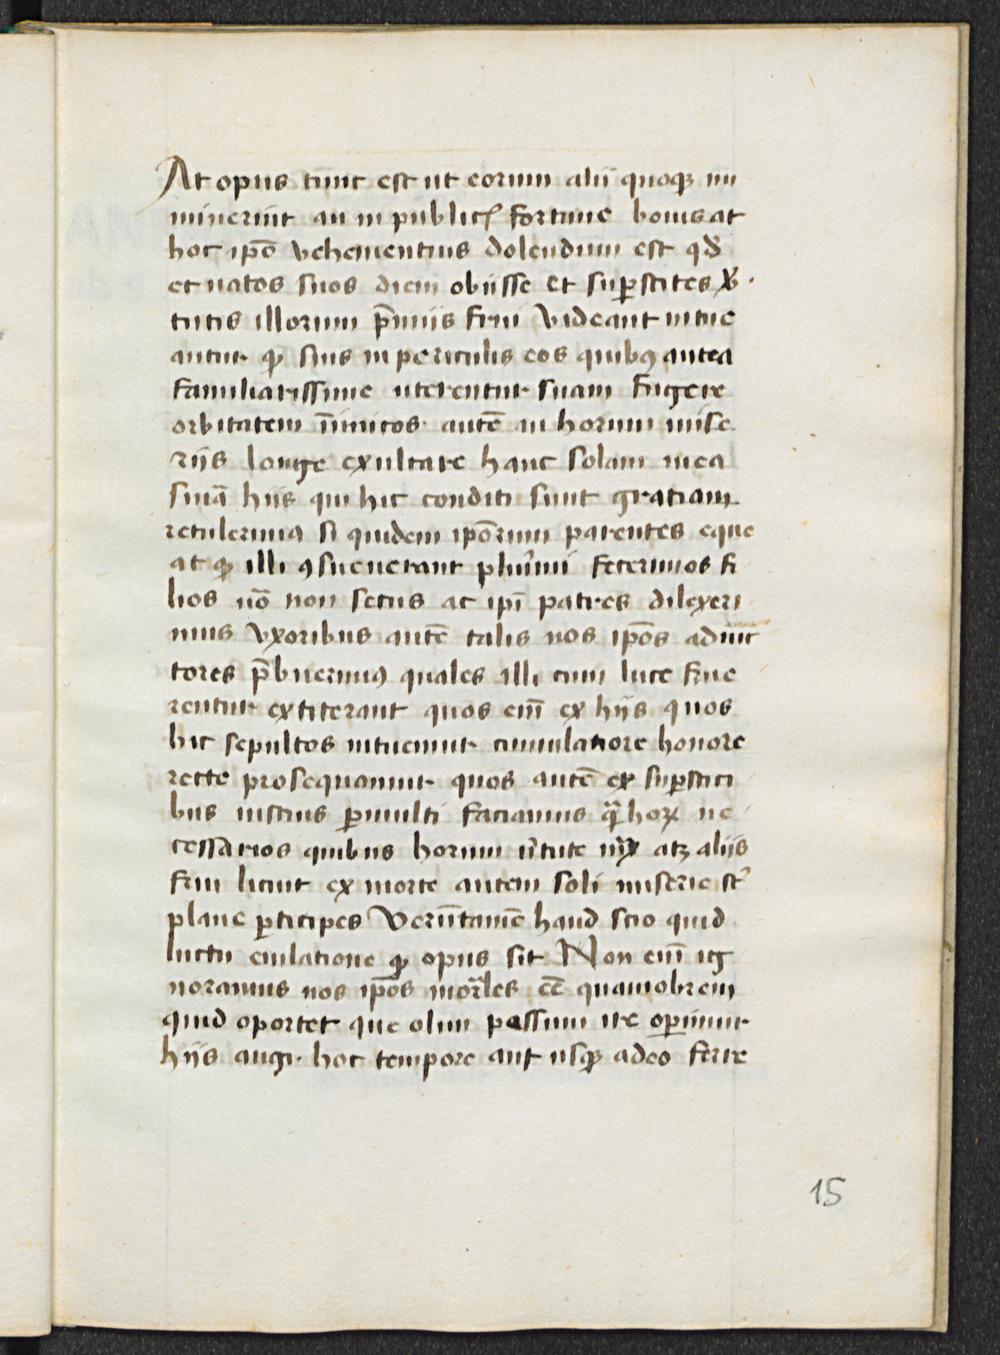 At opus tūnc est ut eorum alii quoqꝫ mi
minerint an in publicę fortune bonis at
hoc ip̄e vehementius dolendum est qđ
et natos suos diem obiisse et suꝑstites v̄
tutis illorum p̄miis frui videant intue
antur qꝫ suis in periculis eos quibꝰ antea
familiarissime uterentur suam fugere
orbitatem īimicos autē in horum mise
riis longe exultare hanc solam mea
sniā hijs qui hic conditi sunt gratiam
retulerimꝰ si quidem ipōrum parentes eque
at qꝫ illi ꝯsueuerant plurīmi fecerimos fi
lios uō non secus ac ipī patres dilexeri
mus vxoribus autē talis nos ipōs adiut
tores p̄buerimꝰ quales illi cum luce frue
rentur extiterant quos enī ex hijs quos
hic sepultos intuemur cumulatiore honore
recte prosequamur quos autē ex suꝑstiti
bus iustius ꝑmulti faciamus q̄ horꝝ ne
cessarios quibus horum ūtute nrꝝ atqꝫ aliis
frui licuit ex morte autem soli miserie st̄
plane ꝑticipes Verūtamē haud scio quid
luctu eiulatione qꝫ opus sit Non enī ig
noramus nos ipōs morāles eē quamobrem
quid oportet que olim passum ire opinimur
hijs angi hoc tempore aut usqꝫ adeo ferre
15